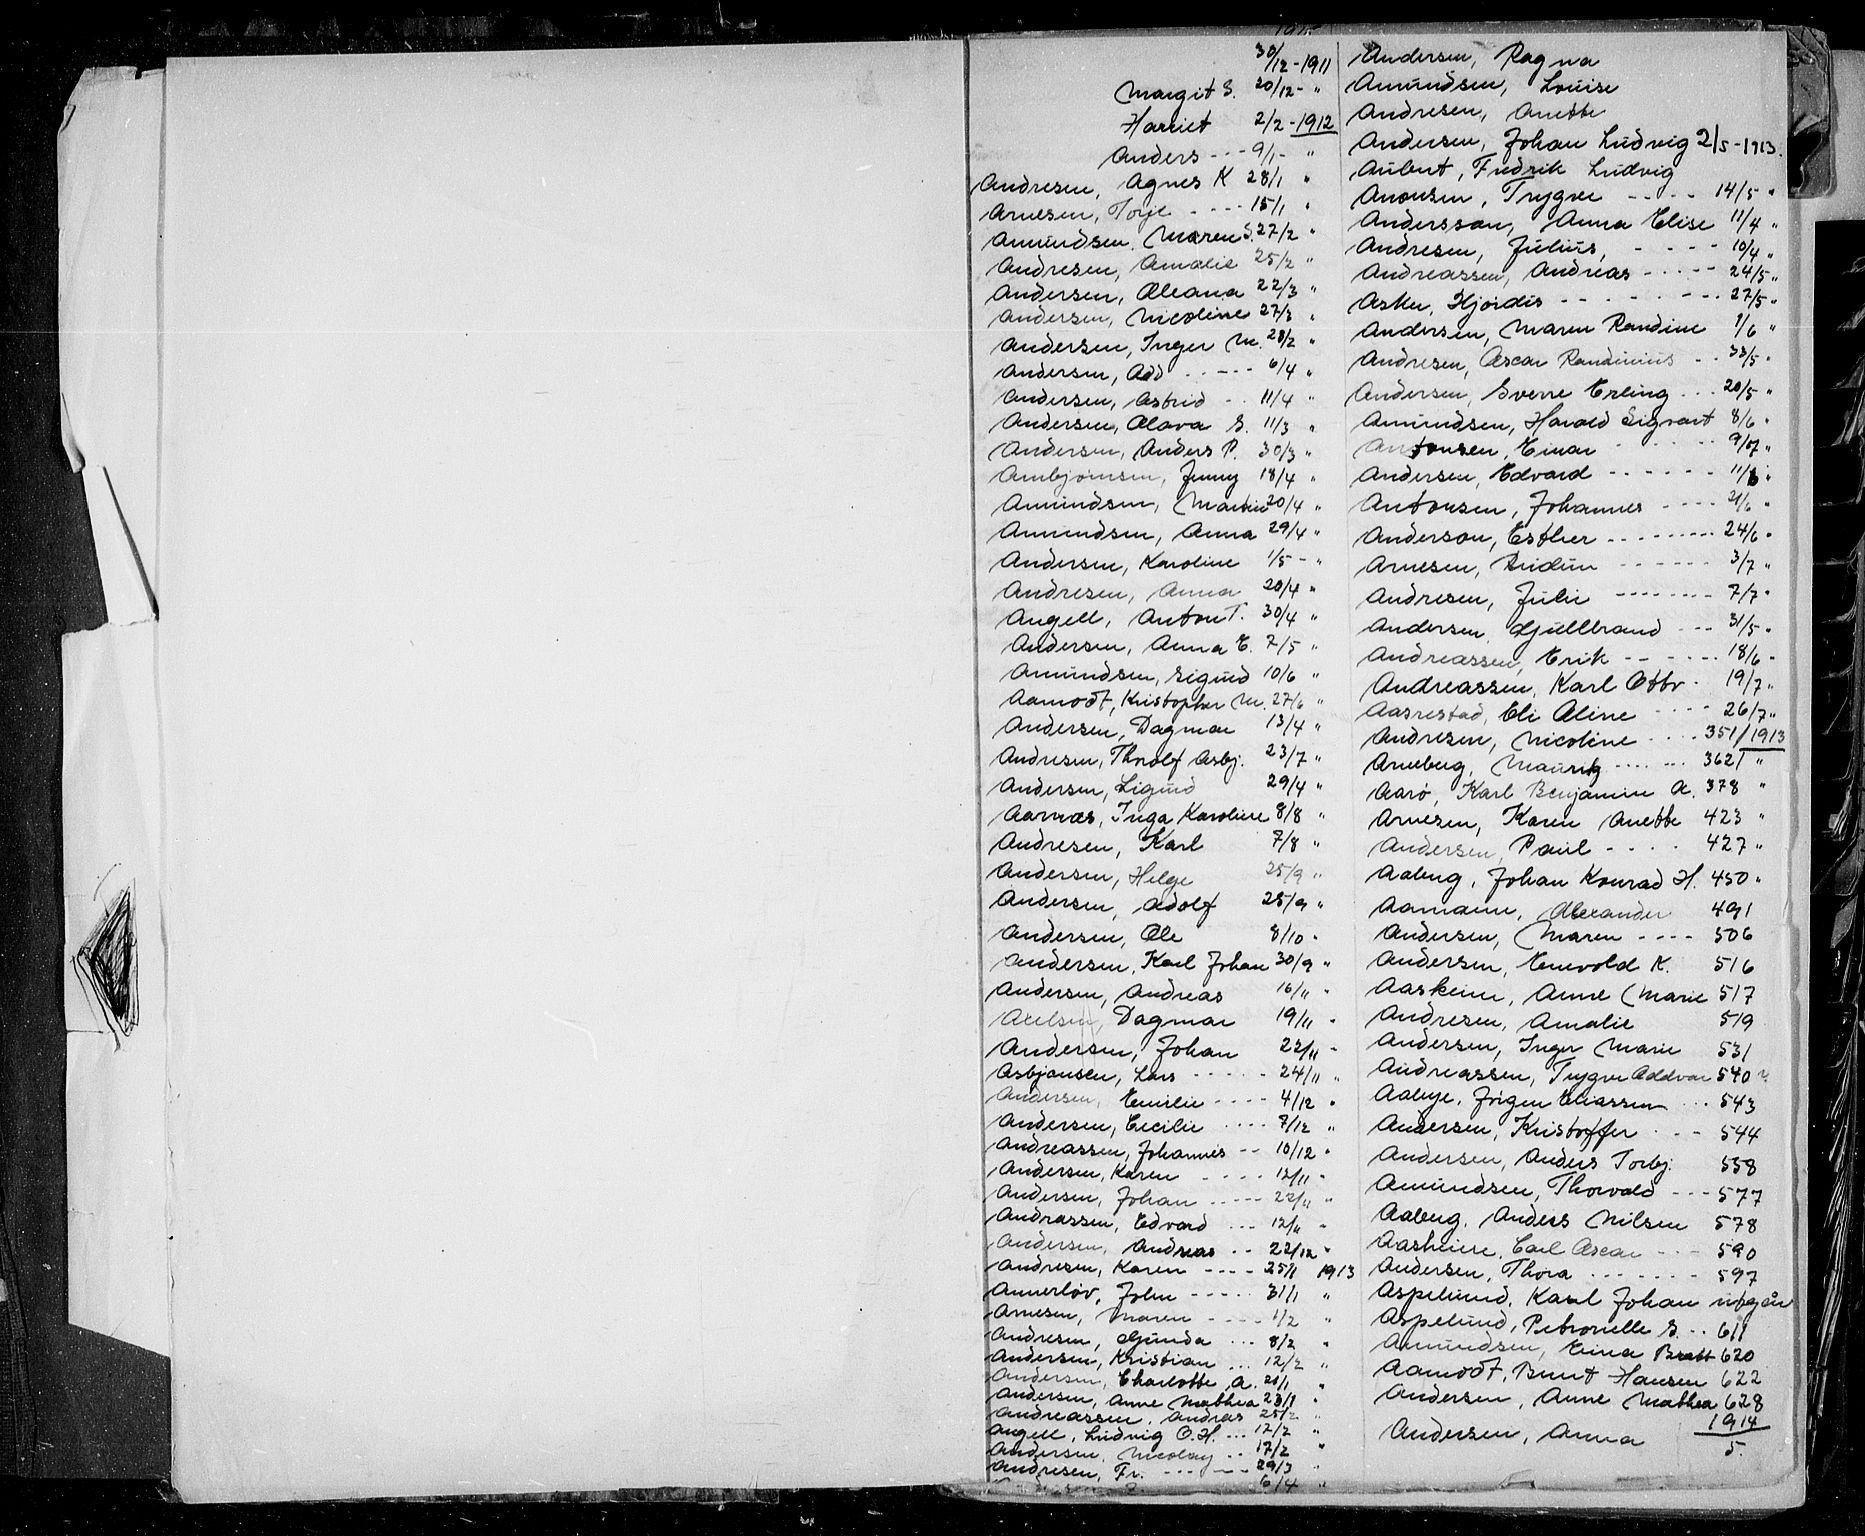 30/12-1911
Margit S. 20/12- "
Harriet 2/2-1912
Anders --- 9/1- "
Andresen, Agnes K 28/1 "
Arnesen, Torje ---- 15/1 "
Amundsen. Maren S. 27/2 "
Andresen, Amalie 25/2 "
Andersen, Oleana 22/3 "
Andersen, Nicoline 27/3 "
Andersen, Inger M. 28/2 "
Andersen, Odd ----- 6/4 "
Andersen, Astrid -- 11/4 "
Andersen, Olava S. 11/3 "
Andersen, Anders P. 30/3 "
Arnbjørnsen, Jenny 18/4 "
Amundsen, Martin 20/4 "
Amundsen, Anna 29/4 "
Andersen, Karoline 1/5 - "
Andresen, Anna 20/4 "
Angell, Anton T. 30/4 "
Andersen, Anna E. 7/5 "
Amundsen, Sigurd 10/6 "
Aamodt, Kristopher M. 27/6 "
Andersen, Dagmar 13/4 "
Andresen, Thorolf Asbj. 23/7 "
Andersen, Sigurd 29/4 "
Aarnæs, Inga Karoline 8/8 "
Andresen, Karl 7/8 "
Andersen, Helge 25/9 "
Andersen, Adolf 25/9 "
Andersen, Ole 8/10 "
Andersen, Karl Johan 30/9 "
Andersen, Andreas 16/11 "
Axelsen, Dagmar 19/11 "
Andersen, Johan 22/11 "
Asbjønsen, Lars ----- 24/11 "
Andersen, Emilie ---- 4/12 "
Andersen, Cecilie ---- 7/12 "
Andreassen, Johannes -- 10/12 "
Andersen, Karen ----- 12/11 "
Andersen, Johan ----- 22/11 "
Andreassen, Edvard --- 12/11 "
Andersen, Andreas -- 22/12 "
Andresen, Karen ---- 25/1 1913
Annerløv, John ----- 31/1 "
Arnesen, Maren ---- 1/2 "
Andresen, Gunda --- 8/2 "
Andersen, Kristian --- 12/2 "
Andersen, Charlotte A. 21/1 "
Andersen, Anne Mathea 23/1 "
Andreassen, Andreas 25/2 "
Angell, Ludvig O.H. --- 12/2 "
Andersen, Nicolay -- 17/2 "
Andresen, Fr. ------ 29/3 "
6/4 "
Andersen, Ragna
Amundsen, Louise
Andresen, Anette
Andersen, Johan Ludvig 2/5-1913.
Aubert, Fredrik Ludvig
Aronsen, Trygve ----- 14/5 "
Anderssen, Anna Elise 11/4 "
Andresen, Julius, ---- 10/4 "
Andreassen, Andreas ----- 24/5 "
Asker, Hjørdis -------- 27/5 "
Andersen, Maren Randine 1/6 "
Andresen, Oscar Randinius -- 23/5 "
Andersen, Sverre Erling --- 20/5 "
Amundsen, Harald Sigvart 8/6 "
Antonsen, Einar
Andersen, Edvard ------
Antonsen, Johannes ----
Anderson, Esther --------- 24/6 "
Arnesen, Bridun ------ 3/7 "
Andresen, Julie -------- 7/7 "
Andersen Gjullbrand --- 31/5 "
Andreassen, Erik ------ 18/6 "
Andreassen, Karl Otto - 19/7 "
Aasrestad, Eli Aline ---- 26/7 "
Andresen, Nicoline ---- 351/1913
Arneberg, Mauritz ------ 362 "
Aarø, Karl Benjamin A. 378 "
Arnesen, Karen Anette 423 "
Andersen, Paul ---- 427 "
Aaberg, Johan Konrad H. 450 "
Aamann, Alexander 491
Andersen, Maren ---- 506
Andersen, Enevold K. 516
Aaskeim, Anne Marie 517
Andresen, Amalie 519
Andersen, Inger Marie 531
Andreassen, Trygve Oddvar 540
Aabye, Jørgen Eliassen --- 543
Andersen, Kristoffer --- 544
Andersen, Anders Torbj. 558
Amundsen, Thorvald --- 577
Aaberg, Anders Nilsen 578
Aasheim, Carl Oscar --- 590
Andersen, Thora ------- 597
Aspelund, Karl Johan utgår
Aspelund, Petronelle S. -- 611
Amundsen, Erina Bratt 620
Aamodt, Bernt Hansen 622
Andersen, Anne Mathea 628
1914
Andersen, Anna 5